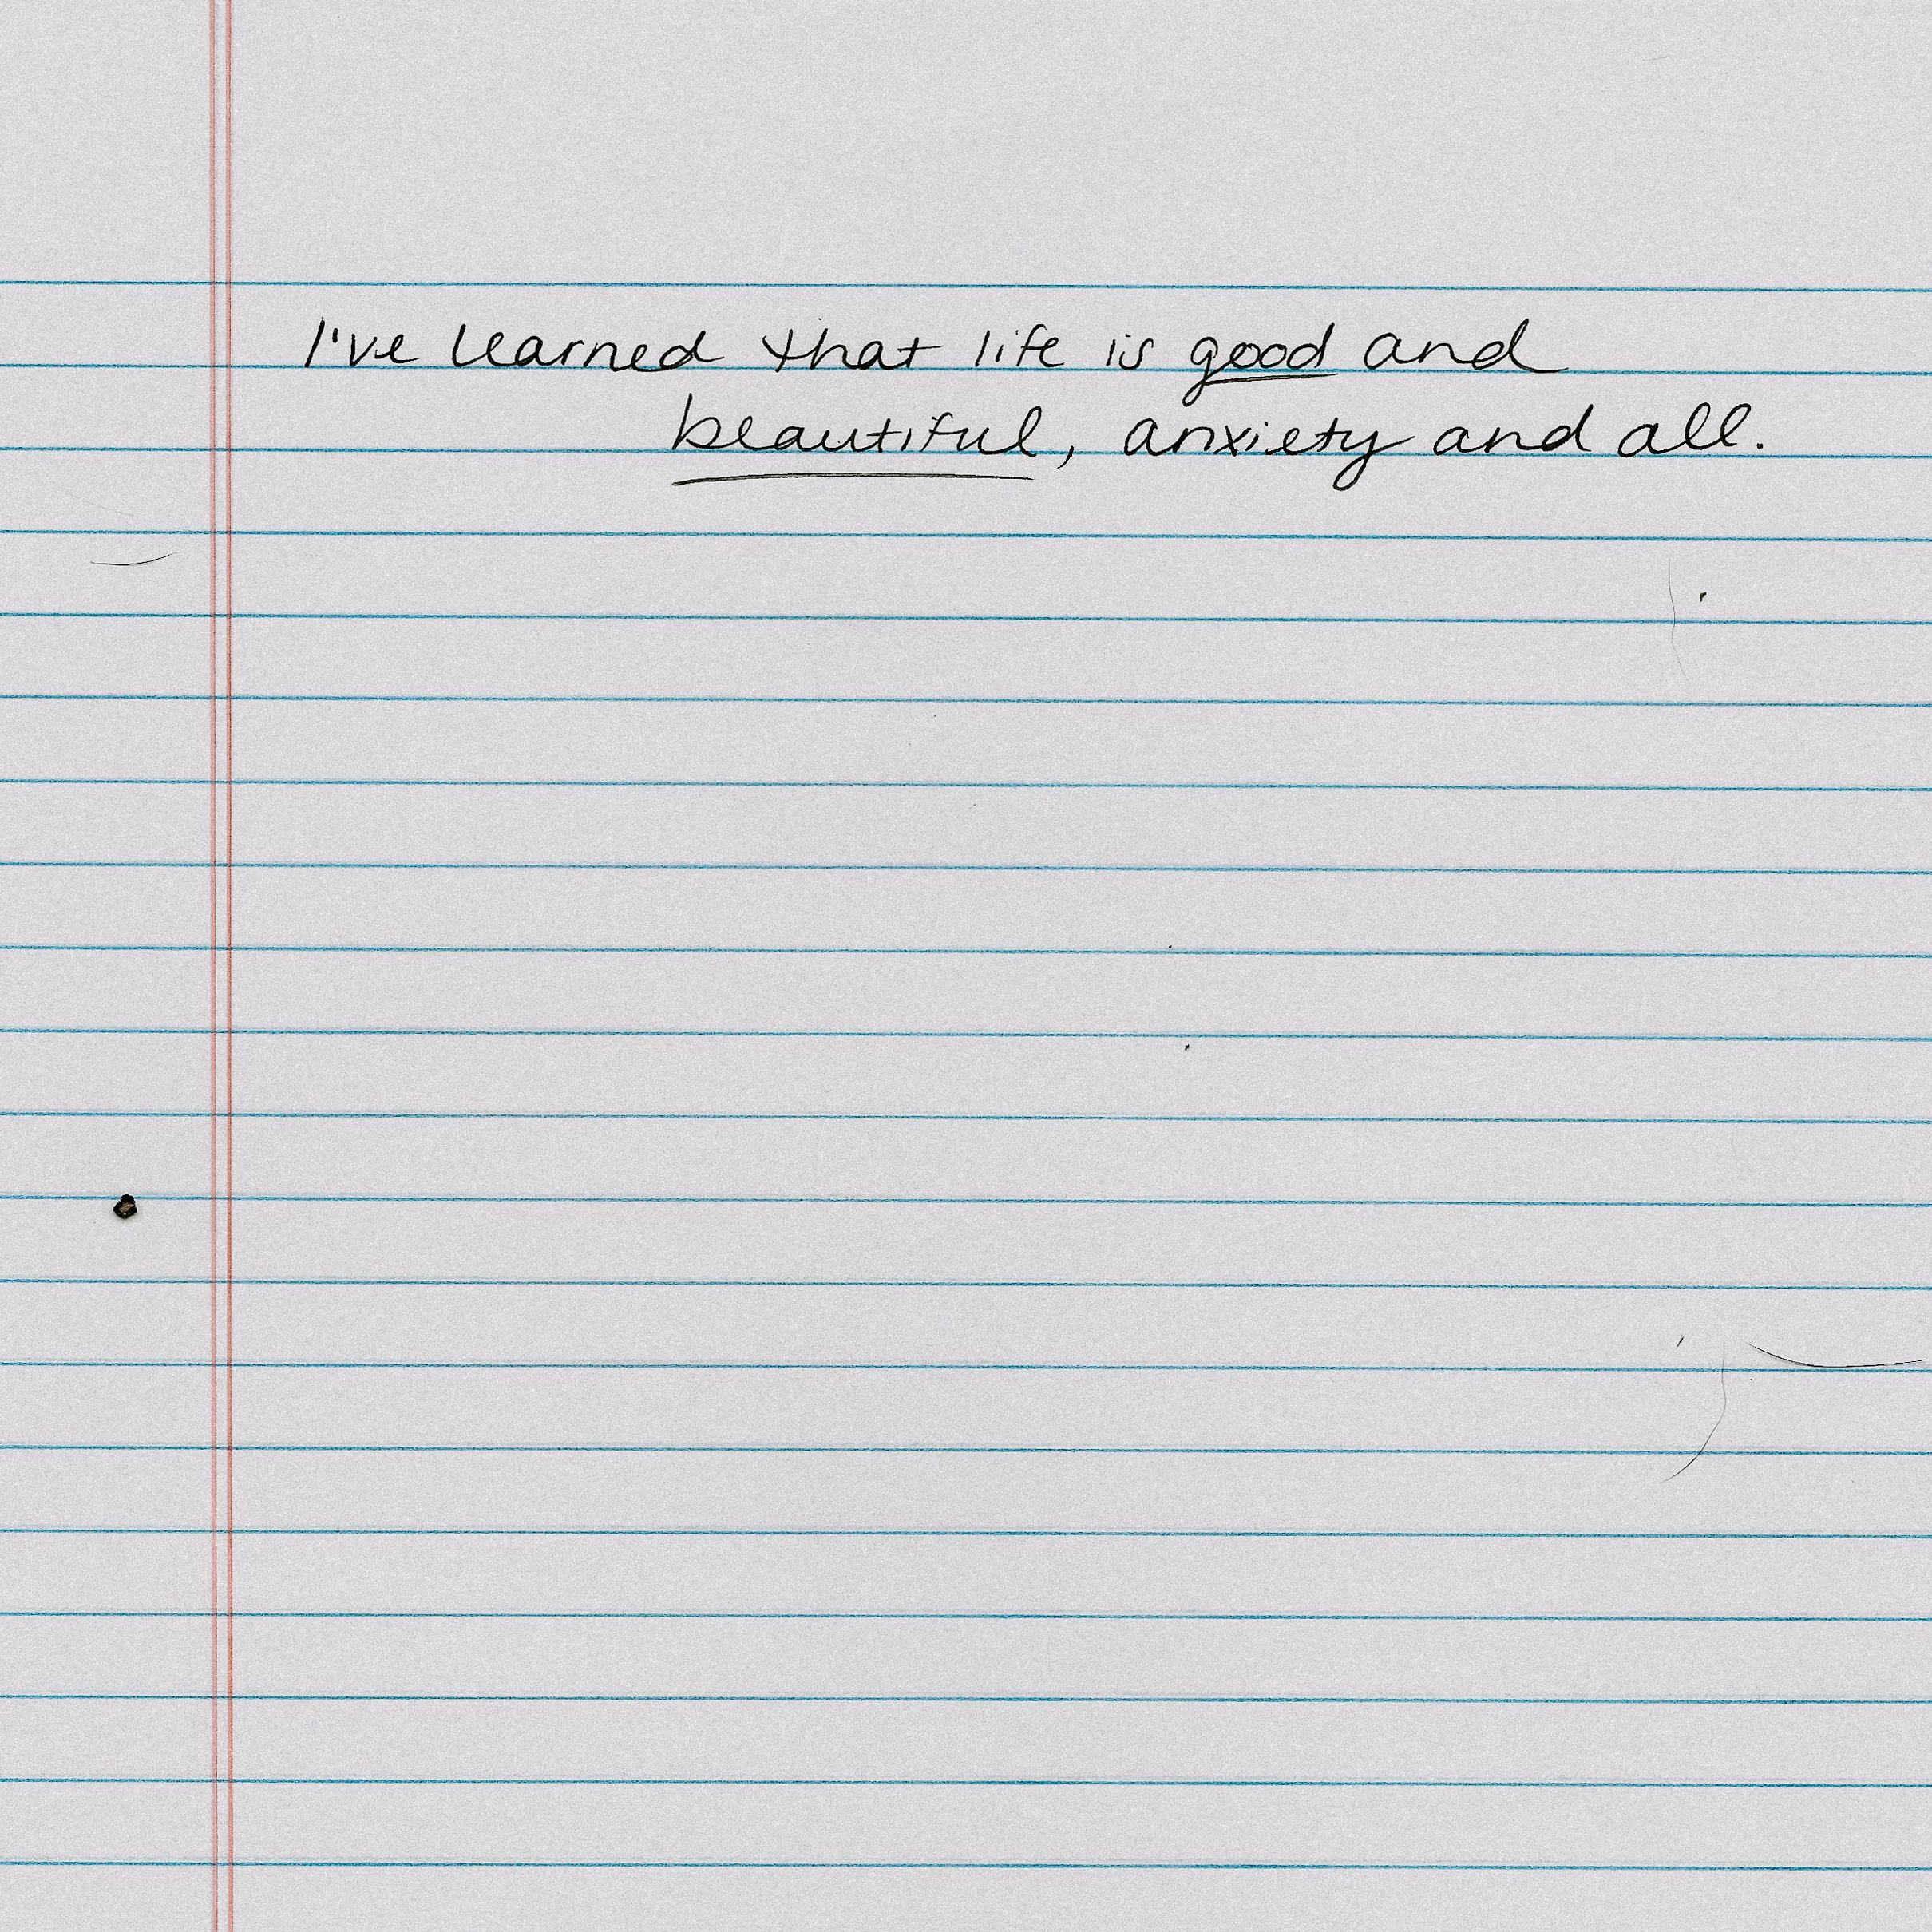 I've learned that life is good and
beautiful, anxiety and all.